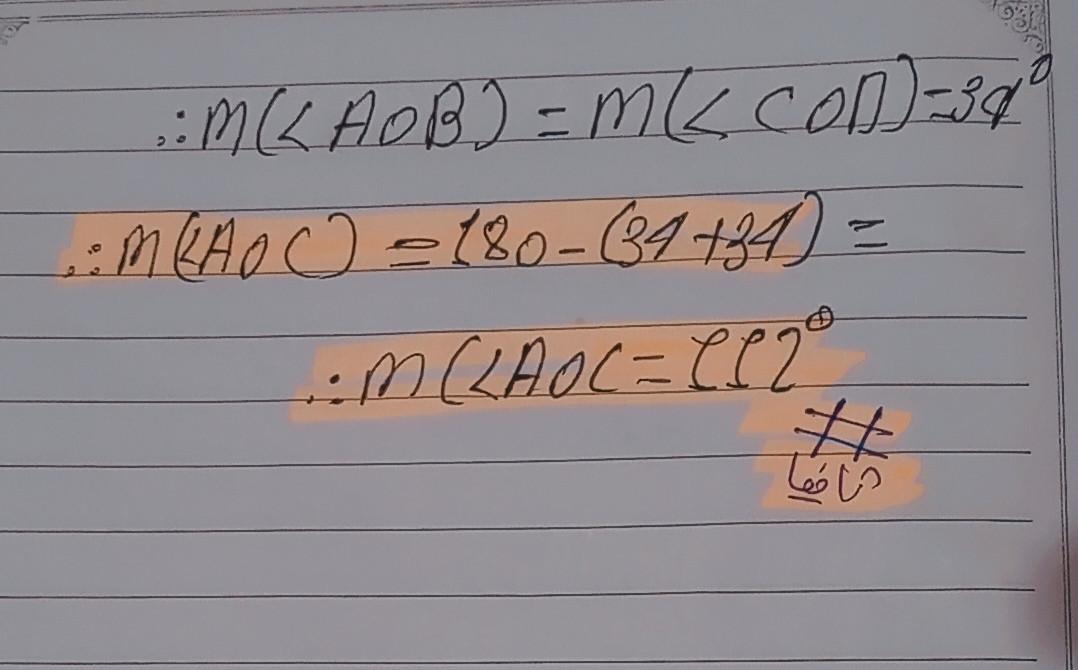 ∴ m(<AOB) = m(<COD) = 34°
∴ m(<AOC) = 180 - (34 + 34) =
∴ m(<AOC = 112°
#